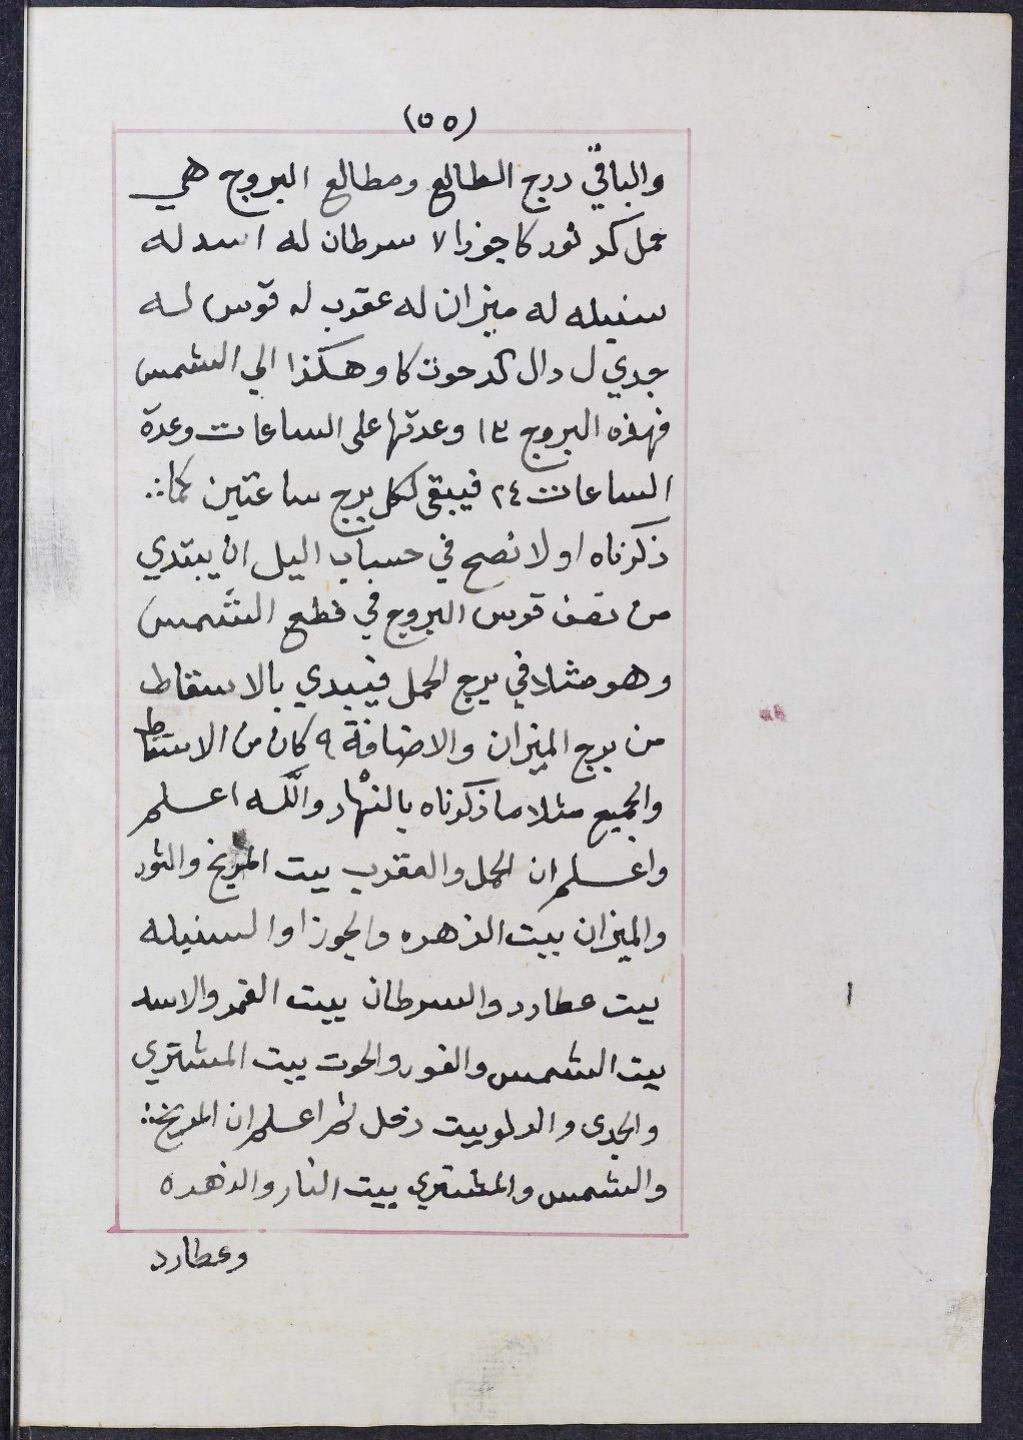 (٥٥)
والباقي درج الطالع ومطالع البروج هي
حمل كد ثور كا جوزا لا سرطان له اسد له
سنبله له ميزان له عقرب له قوس له
جدي ل دال كد حوت كا وهكذا الي الشمس
فهذه البروج ١٢ وعدتها على الساعات وعدة
الساعات ٢٤ فيبقى لكل برج ساعتين كما
ذكرناه اولا نصح في حساب اليل ان يبتدي
من نصف قوس البروج في قطع الشمس
وهو مثلا في برج الحمل فيبدي بالاسقاط
من برج الميزان والاضافة ٩ كان من الاسقاط
والجميع مثلا ما ذكرناه بالنهار والله اعلم
واعلم ان الحمل والعقرب بيت المريخ والثور
والميزان بيت الزهره والجوزا والسنبله
بيت عطارد والسرطان بيت القمر والاسد
بيت الشمس والقوس والحوت بيت المشتري
والجدى والدلو بيت زحل ثم اعلم ان المريخ
والشمس والمشتري بيت النار والزهره
وعطارد